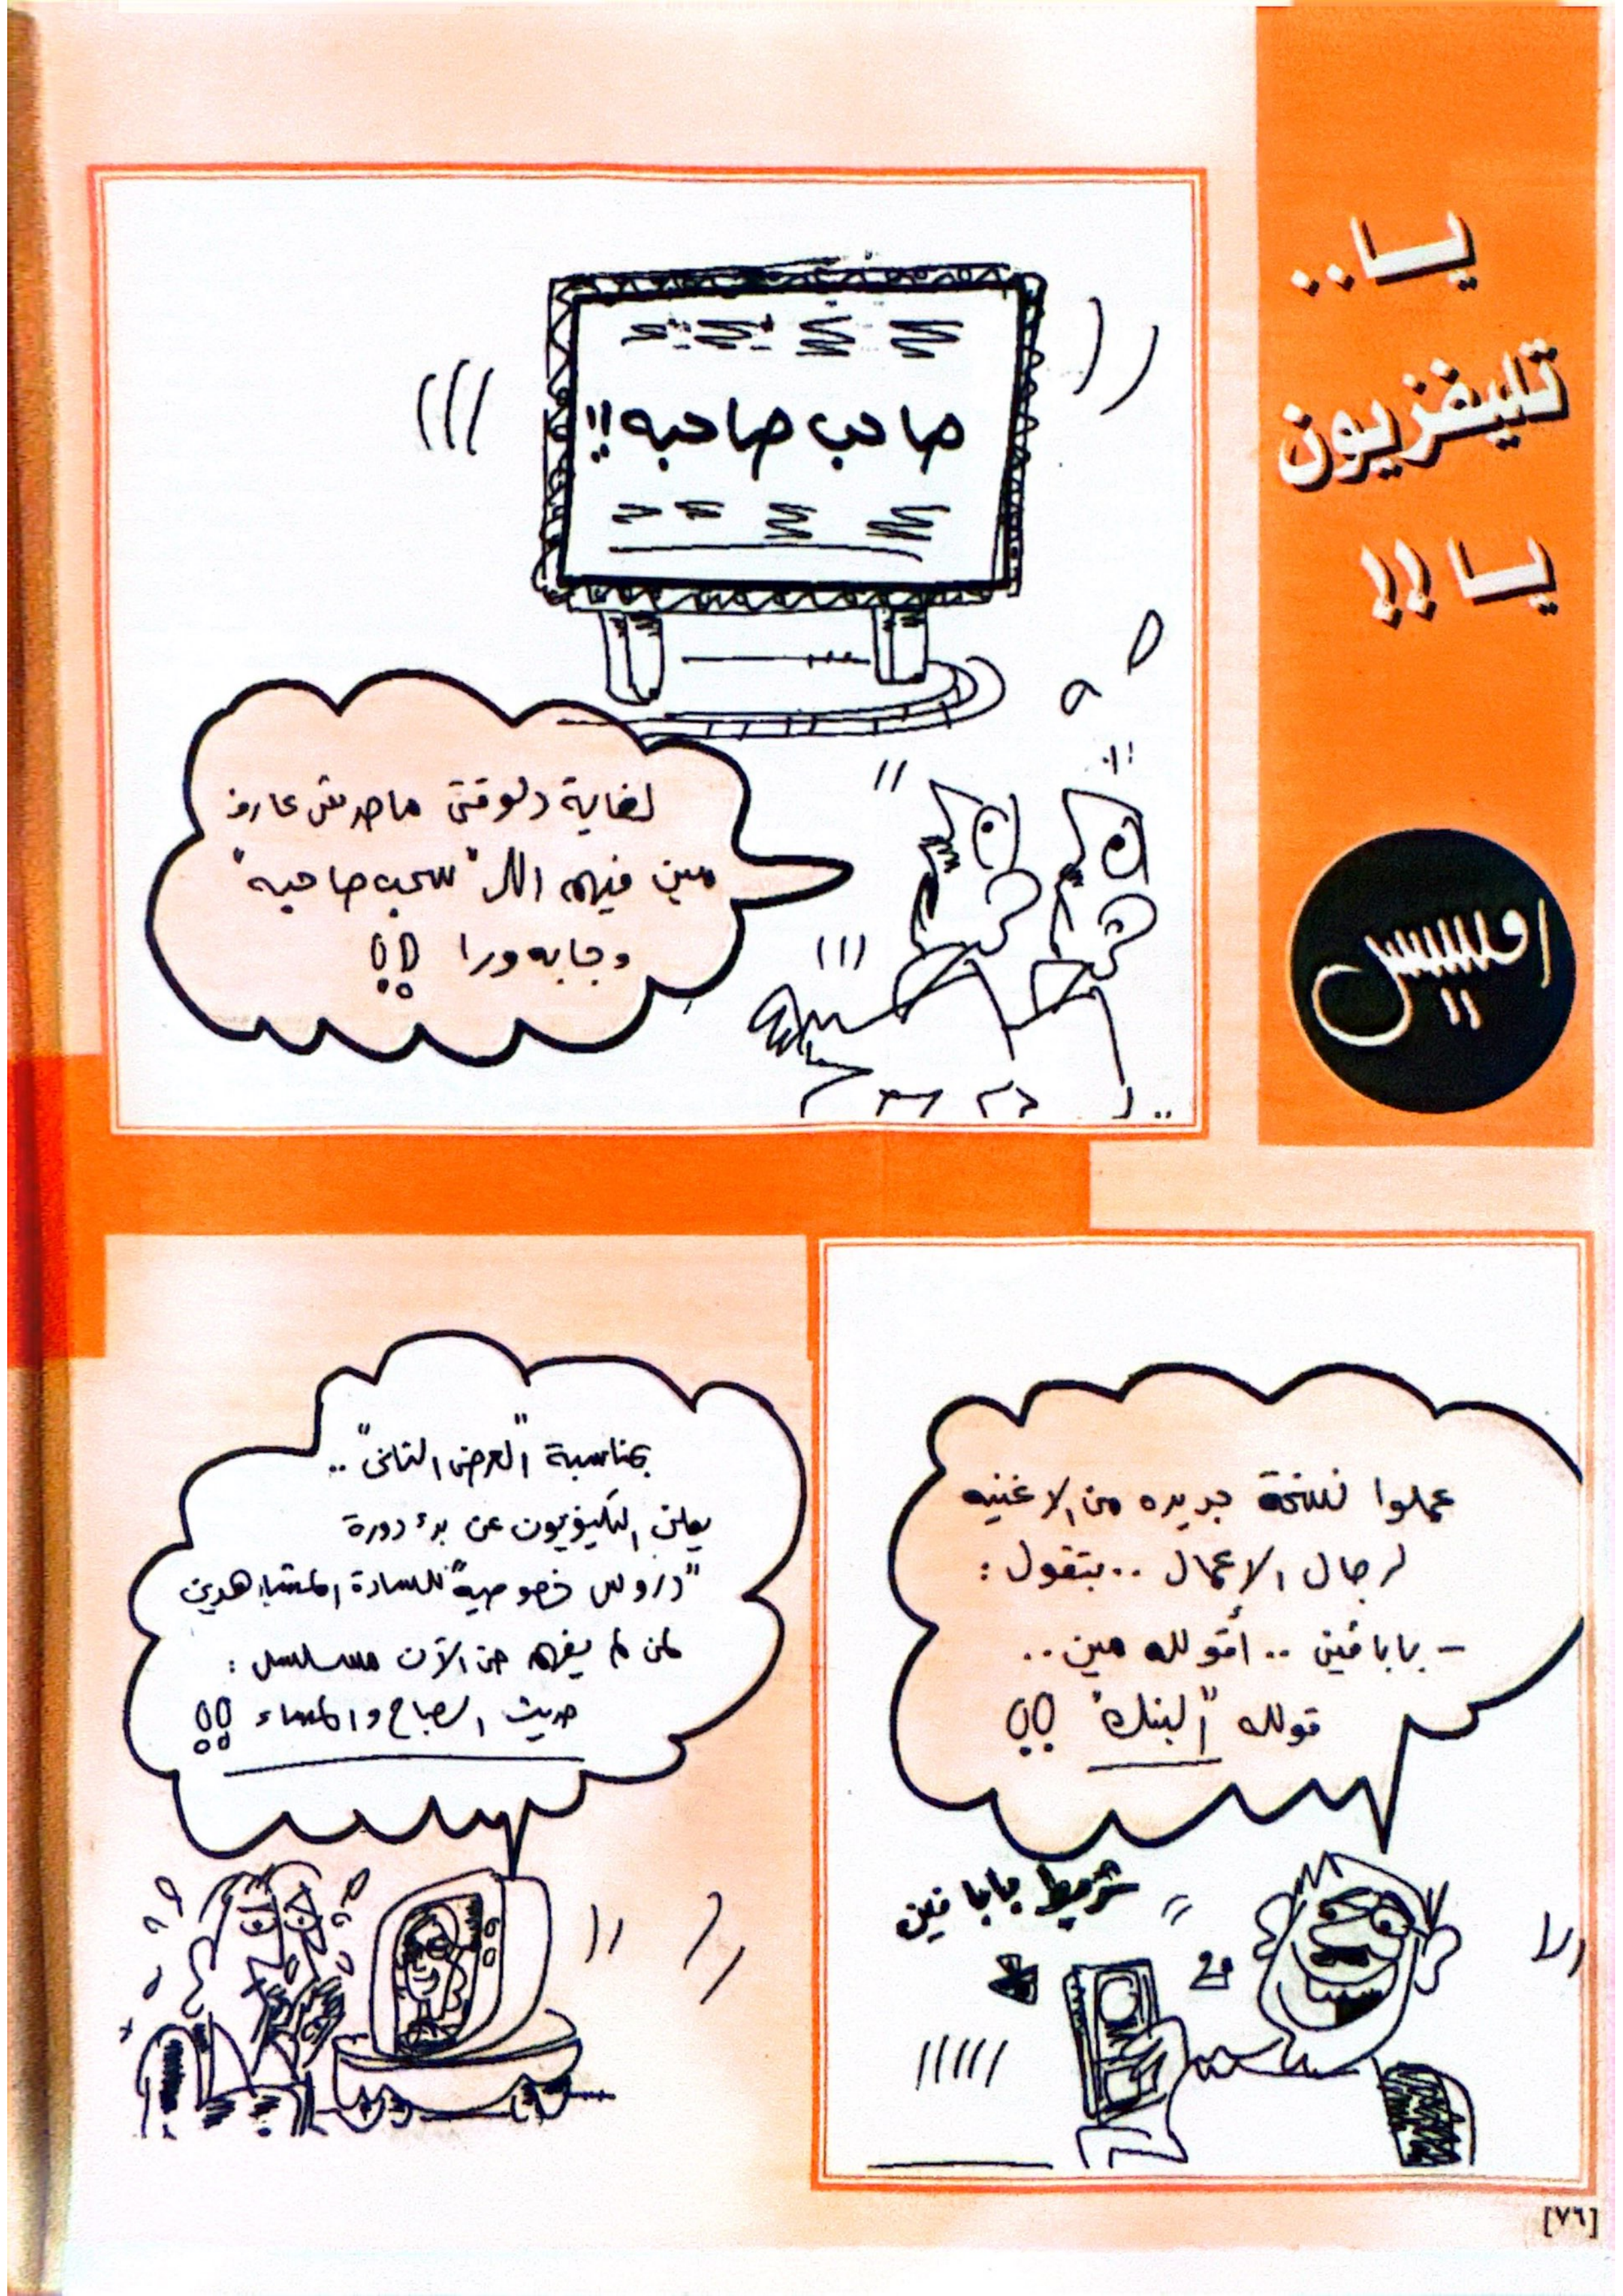 يا..
تليفزيون
يا!!
صاحب صاحبه!!
لغاية دلوقتى ماحدش عارف
مين فيهم اللى "سحب صاحبه"
وجابه ورا !!
عملوا نسخة جديده من الاغنيه
لرجال الاعمال .. بتقول :
- بابا فين .. أقولله مين ..
قولله "البنك" !!
شريط بابا فين
بمناسبة "العرض التانى" ..
يعلن التليفزيون عن بدء دورة
"دروس خصوصية" للسادة المشاهدين
لمن لم يفهم حتى الآن مسلسل :
حديث الصباح والمساء !!
[٧٦]